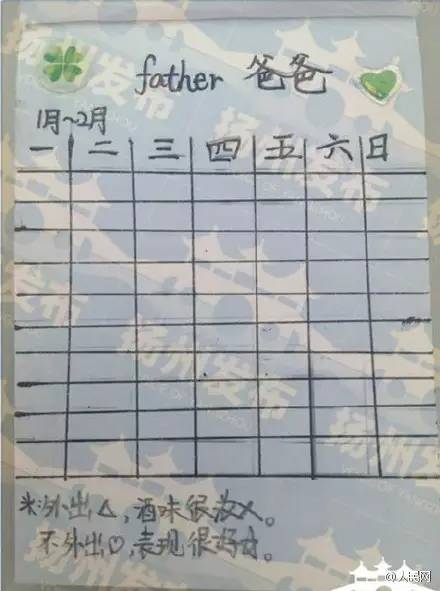 father 爸爸
1月~2月
一 二 三 四 五 六 日
*:外出△,酒味很浓×。
不外出♡,表现很好☆。
扬州发布
@人民网